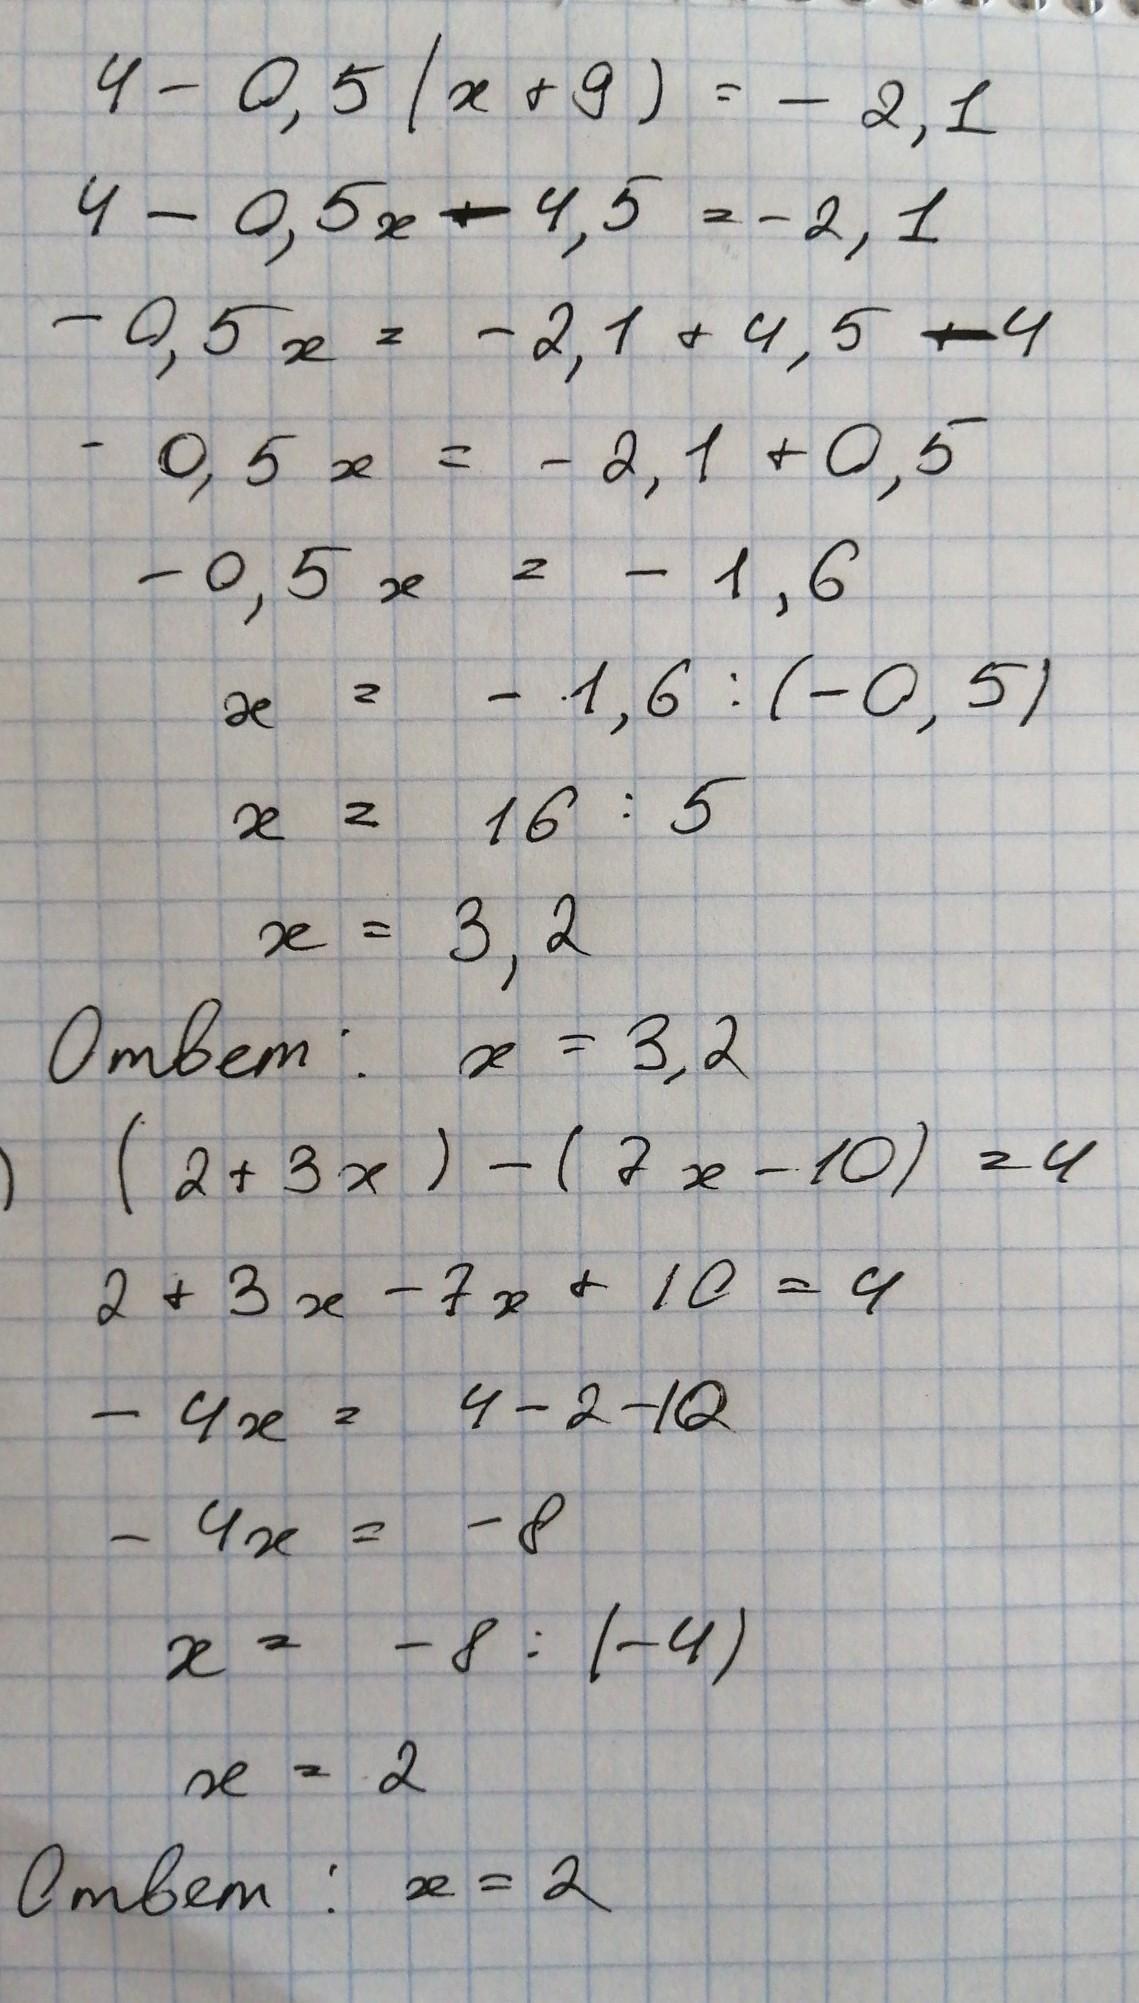 4 - 0,5(x+9) = - 2,1
4 - 0,5x - 4,5 = - 2,1
- 0,5x = - 2,1 + 4,5 - 4
- 0,5x = - 2,1 + 0,5
- 0,5x = - 1,6
x = - 1,6 : (-0,5)
x = 16 : 5
x = 3,2
Ответ: x = 3,2
) (2+3x) - (7x-10) = 4
2 + 3x - 7x + 10 = 4
- 4x = 4 - 2 - 10
- 4x = - 8
x = - 8 : (-4)
x = 2
Ответ: x = 2